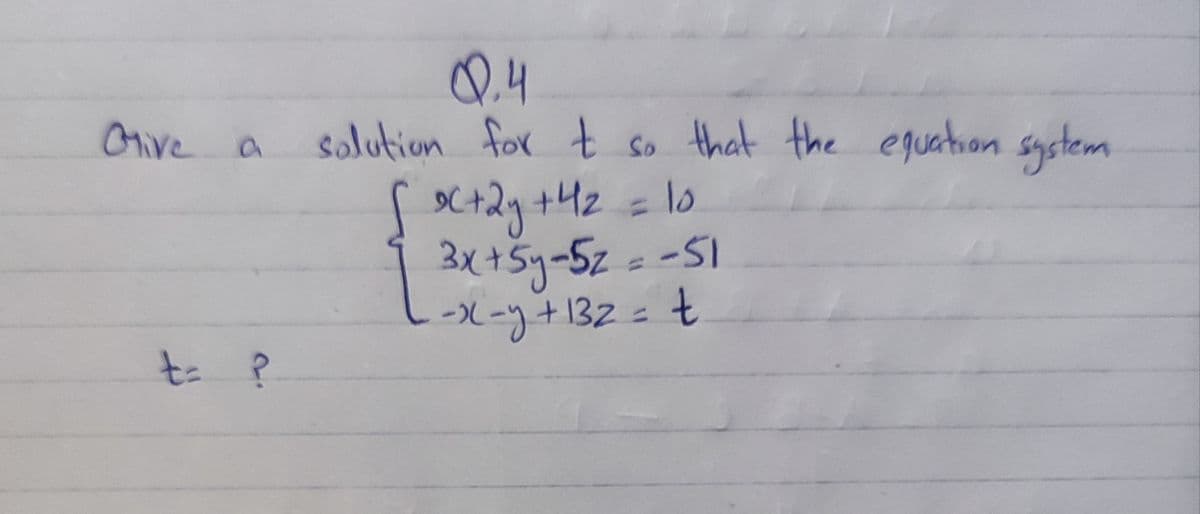 Q.4
Give a solution for t so that the equation system
x+2y+4z = 10
3x+5y-5z = -51
-x-y+13z = t
t= ?